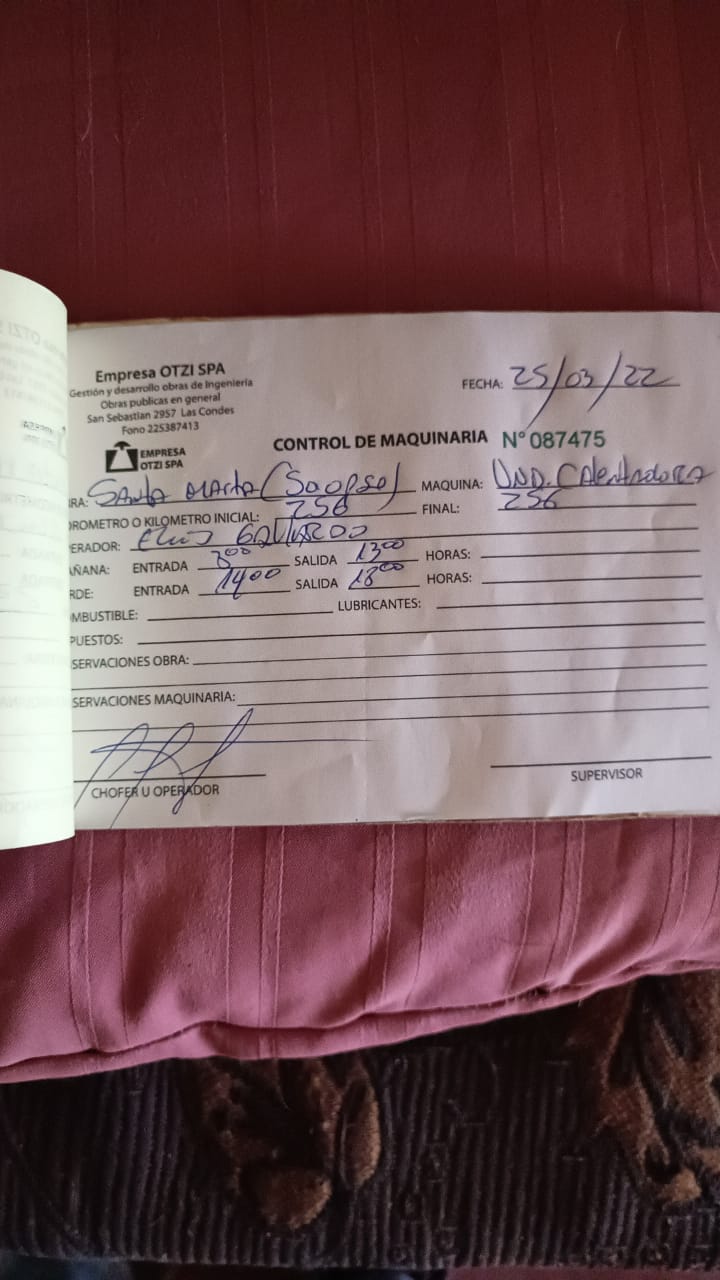 Empresa OTZI SPA
Gestión y desarrollo obras de Ingeniería
Obras publicas en general
San Sebastian 2957 Las Condes
Fono 225387413
EMPRESA
OTZI SPA
FECHA: 25/03/22
CONTROL DE MAQUINARIA N° 087475
BRA: Santa Marta ( MAQUINA: UND. CAlentadora
OROMETRO O KILOMETRO INICIAL: 256 FINAL: 256
ERADOR: GALLARDO
AÑANA: ENTRADA 8°° SALIDA 13°° HORAS:
RDE: ENTRADA 14°° SALIDA 18°° HORAS:
OMBUSTIBLE: LUBRICANTES:
PUESTOS:
SERVACIONES OBRA:
SERVACIONES MAQUINARIA:
CHOFER U OPERADOR SUPERVISOR